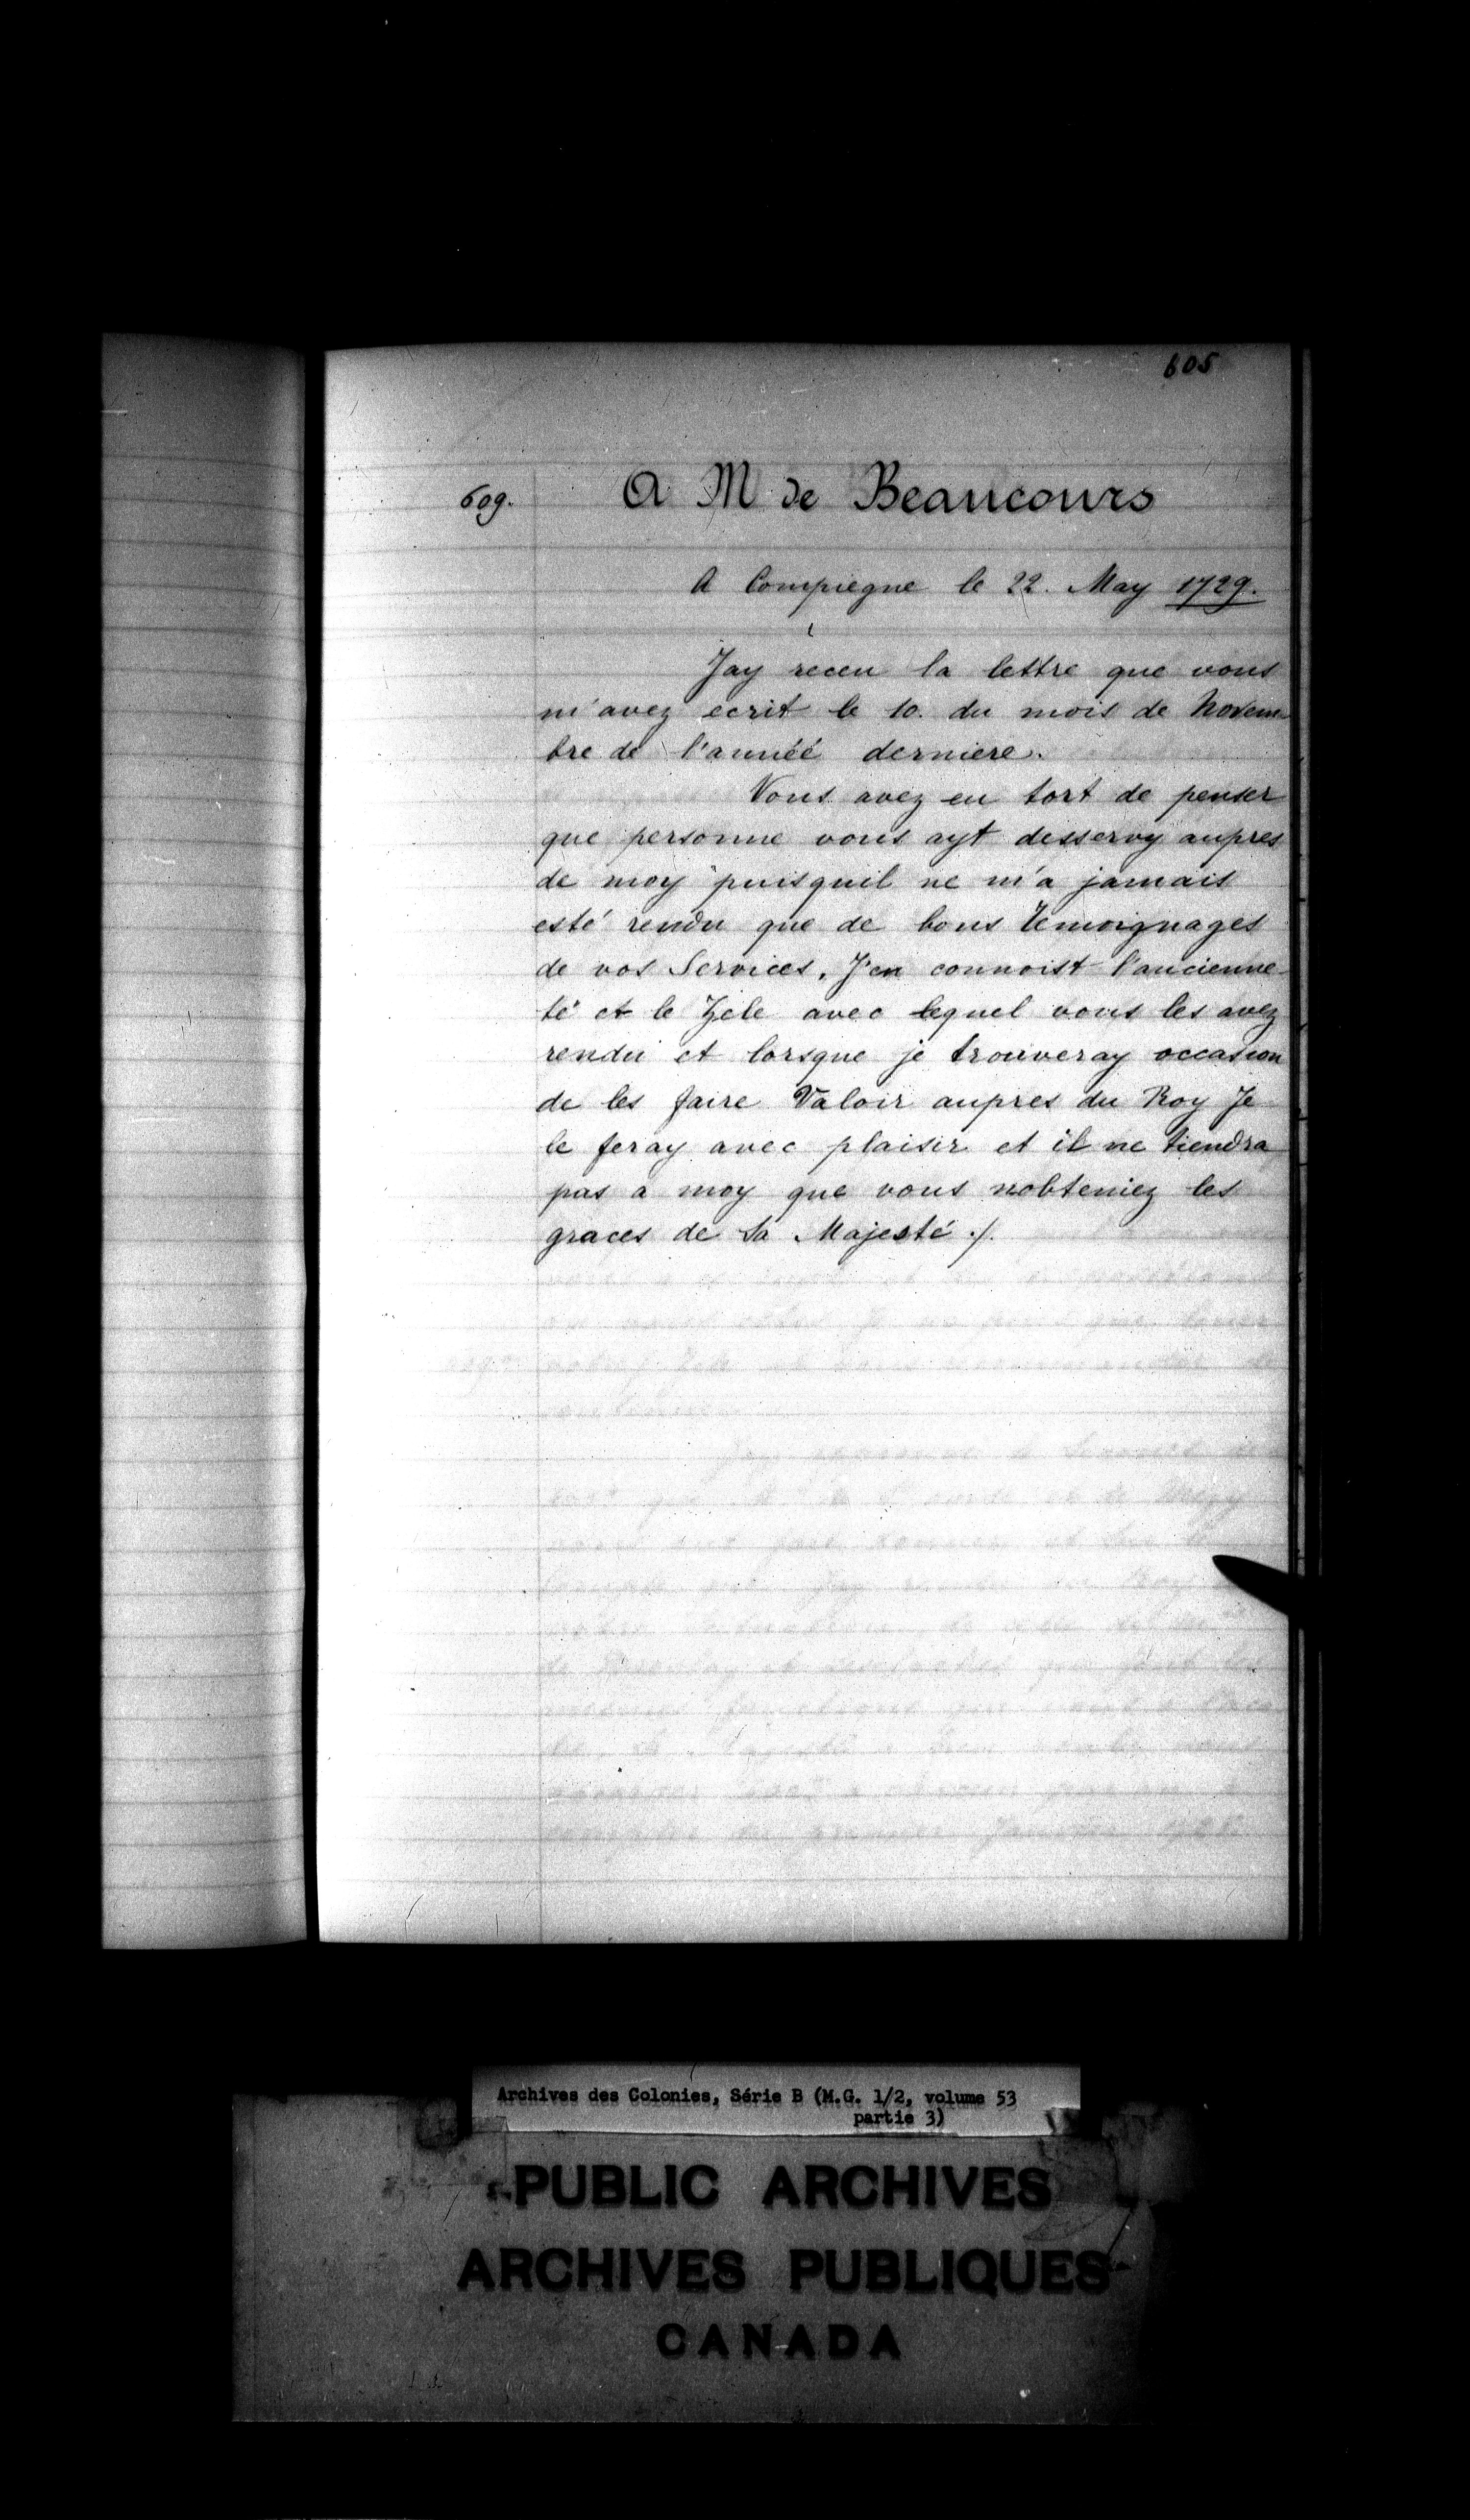 605
609.
A M de Beaucours
A Compiegne le 22. May 1729.
Jay receu la lettre que vous
m'avez ecrit le 10. du mois de Novem-
bre de l'année derniere.
Vous avez eu tort de penser
que personne vous ayt desservy aupres
de moy puisquil ne m'a jamais
esté rendu que de bons temoignages
de vos Services. J'en connoist l'ancienne-
té et le Zele avec lequel vous les avez
rendu et lorsque je trouveray occasion
de les faire Valoir aupres du Roy Je
le feray avec plaisir et il ne tiendra
pas a moy que vous nobteniez les
graces de Sa Majesté ./.
Archives des Colonies, Série B (M.G. 1/2, volume 53
partie 3)
PUBLIC ARCHIVES
ARCHIVES PUBLIQUES
CANADA